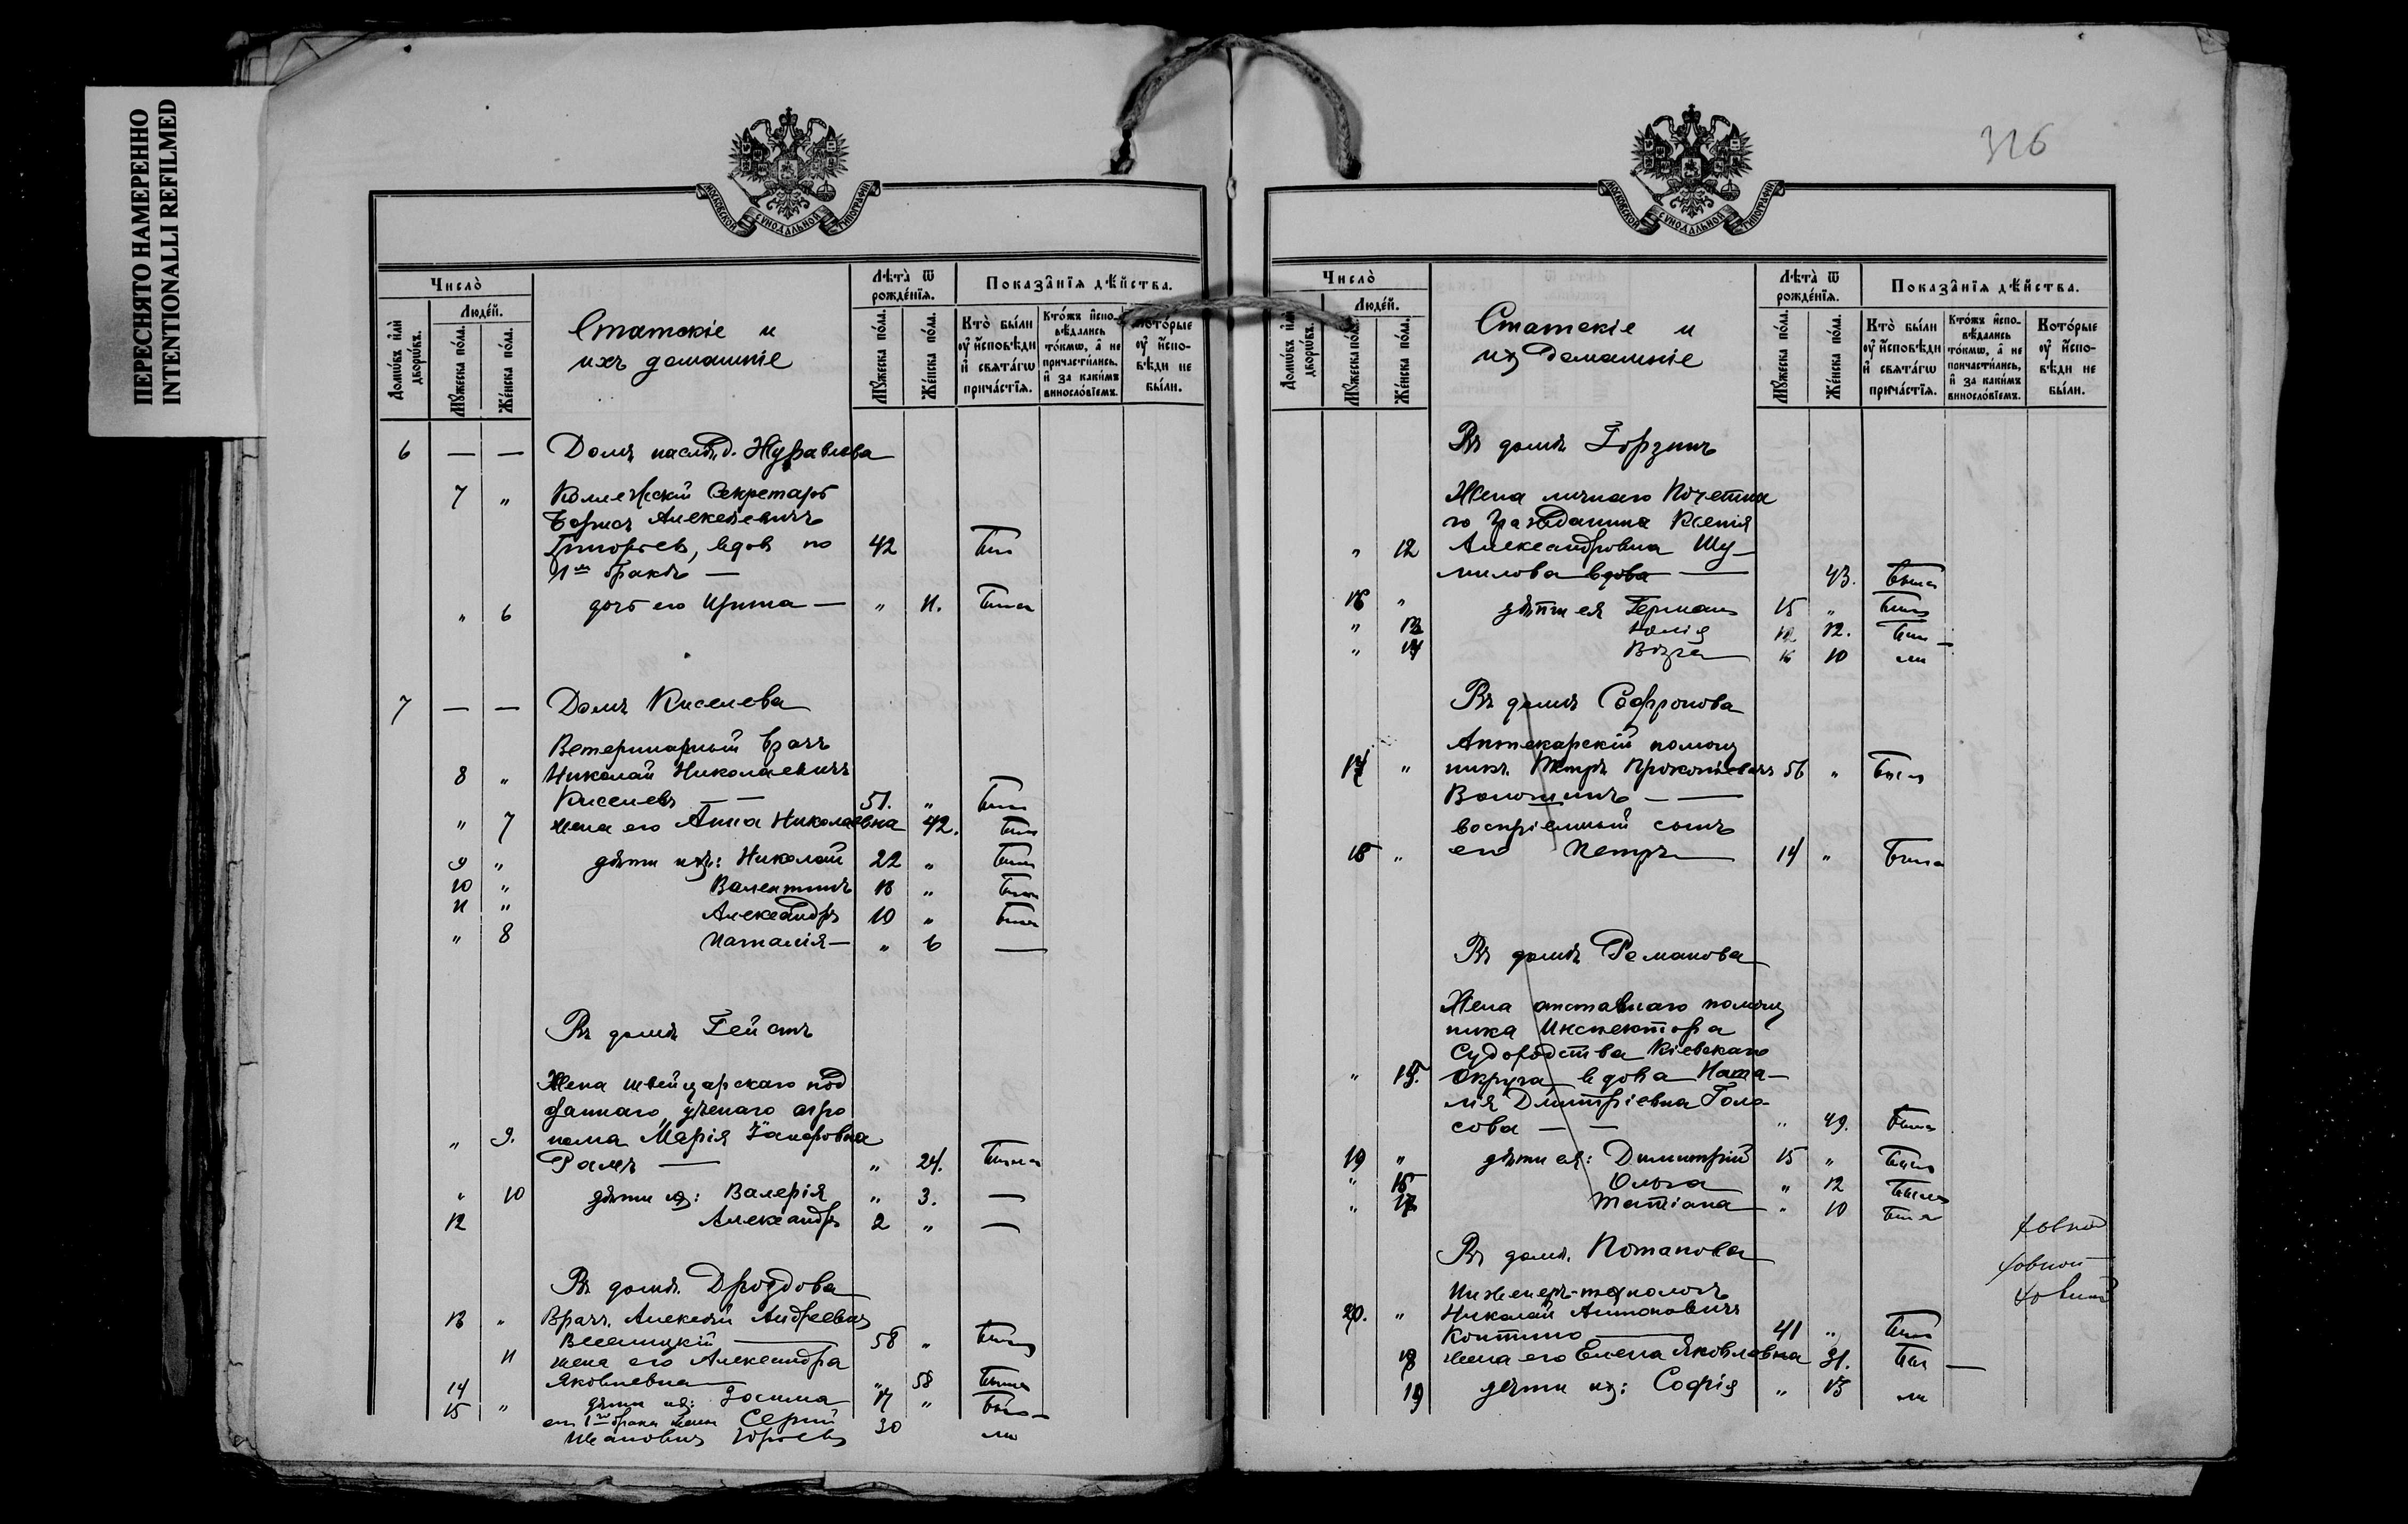 ПЕРЕСНЯТО НАМЕРЕННО
INTENTIONALLI REFILMED
МОСКОВСКОЙ СУНОДАЛЬНОЙ ТИПОГРАФІИ
Число̀
Лѣта̀ ѿ рожде́нїѧ.
Показа̑нїѧ дѣ́йства.
Домѡ́въ и҆лѝ дворѡ́въ.
Люде́й.
Мꙋ́жеска по́ла.
Же́нска по́ла.
Статскіе и
ихъ домашніе
Мꙋ́жеска по́ла.
Же́нска по́ла.
Кто̀ бы́ли ᲂу҆ и҆́сповѣди и҆ свѧта́гѡ прича́стїѧ.
Кто́жъ и҆спо-вѣ́дались то́кмѡ, а҆ не причасти́лись, и҆ за каки́мъ виносло́вїемъ.
Кото́рые ᲂу҆ и҆́спо-вѣди не бы́ли.
6 — — Домъ наслѣд. Журавлева
7 " Коллежскій Секретарь
Борисъ Алексѣевичъ
Григорьевъ, вдов по 42 Был
II м бракѣ —
" 6 дочь его Ирина — " 11. Была
7 — — Домъ Киселева
Ветеринарный врачъ
8 " Николай Николаевичъ
Киселевъ — — 51. " Был
" 7 жена его Анна Николаевна 42. Был
9 " дѣти ихъ: Николай 22 " Был
10 " Валентинъ 13 " Был
11 " Александръ 10 " Был
" 8 Наталія — " 6 —
Въ домѣ Гейстъ
Жена швейцарскаго под
даннаго, ученаго агро
" 9. нома Марія
Рамъ — " 24. Была
" 10 дѣти их: Валерія " 3. —
12 Александръ 2 " —
Въ домѣ Дроздова
13 " Врачъ Алексѣй Андреевичъ
58 " Был
11 жена его Александра
Яковлевна " 58 Была
14 дѣти их: Зосима 17 " Бы-
15 " от 1го брака жены Сергій 30 ли
Ивановичъ Юрьевъ
326
МОСКОВСКОЙ СУНОДАЛЬНОЙ ТИПОГРАФІИ
Число̀
Лѣта̀ ѿ рожде́нїѧ.
Показа̑нїѧ дѣ́йства.
Домѡ́въ и҆лѝ дворѡ́въ.
Люде́й.
Мꙋ́жеска по́ла.
Же́нска по́ла.
Статскіе и
их домашніе
Мꙋ́жеска по́ла.
Же́нска по́ла.
Кто̀ бы́ли ᲂу҆ и҆́сповѣди и҆ свѧта́гѡ прича́стїѧ.
Кто́жъ и҆спо-вѣ́дались то́кмѡ, а҆ не причасти́лись, и҆ за каки́мъ виносло́вїемъ.
Кото́рые ᲂу҆ и҆́спо-вѣди не бы́ли.
Въ домѣ
Жена личнаго Почетна
го Гражданина Ксенія
" 12 Александровна Шу-
милова вдова — 43. Была
16 " дѣти ея Германъ 15 " Был
" 13 Юлія 12. Бы-
" 14 10 ли
Въ домѣ Сафронова
Аптекарскій помощ
17 " никъ Петръ Прокопьевичъ 56 " Был
Волошинъ — —
воспріемный сынъ
18 " его Петръ — 14 " Был
Въ домѣ Романова
Жена отставнаго помощ
ника Инспектора
Судоходства Кіевскаго
" 15. Округа вдова Ната-
лія Дмитріевна Голо-
сова — — " 49. Была
19 " дѣти ея: Димитрій 15 " Был
" 16 Ольга " 12 Была
" 17 Татіана " 10 Была
Въ домѣ Потапова
Инженеръ-технологъ
20. " Николай Антоновичъ
41 " Был
18 жена его Елена Яковлевна 31. Бы —
19 дѣти их: Софія " 13 ли